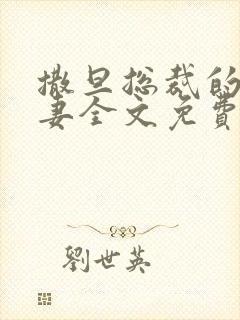 撒旦总裁的
妻全文免費
劉世英